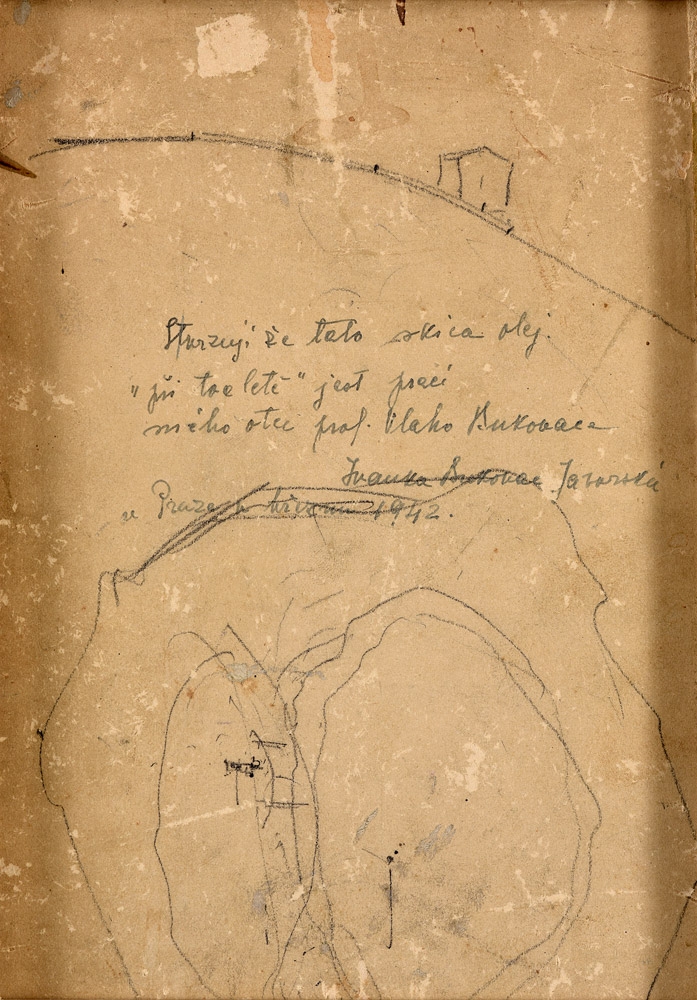 Stvrzuji že tato skica olej.
"při toaletě" jest prací
mého otce prof. Vlaho Bukovace
Ivanka Bukovac Javorská
v Praze v březnu 1942.